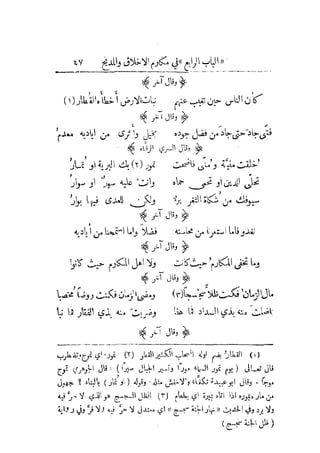 «الباب الرابع» في مكارم الاخلاق والمديح ٤٧
وقال آخر
كأن الناس حين تغيب عنهم نبات الارض أخطأه القطار (١)
وقال آخر
فتى جاد حتى جاد من فضل جوده بخيل وأثرى من اياديه معدم
وقال السري الرفاء
اخلفت منية ومنى فاضحت تمور (٢) بك البرية او تمار
تحلى الدين او تحمي حماه وانت عليه سور او سوار
سيوفك من شكاة الثغر برء ولكن للعدى فيها بوار
وقال آخر
نغدو فاما استعرنا من محاسنه فضلا واما استمحنا من أياديه
وقال آخر
وما تخفى المكارم حيث كانت ولا اهل المكارم حيث كانوا
وقال آخر
مال الزمان فكنت ظلا سجسجا (٣) ومضى الزمان فكنت روضا مخصبا
منه بذي السداد فما هفا وضربت منه بذي الفقار فما نبا
وقال آخر
(١) القطار بضم اوله السحاب الكثير القطار (٢) تمور اي تموج وتضطرب
قال تعالى (يوم تمور السماء مورا وتسير الجبال سيرا) : قال الجوهري تموج
موجا . وقال ابو عبيدة تكفأ والاخفش مثله . وقوله (او تمار) بالبناء لمجهول
من مار يموره اذا اتاه بميرة اي بطعام (٣) الظل السجسج هو الذي لا حر فيه
ولا برد وفي الحديث «نهار الجنة سجسج» اي معتدل لا حر فيه ولا قر وفي رواية
(ظل الجنة سجسج)